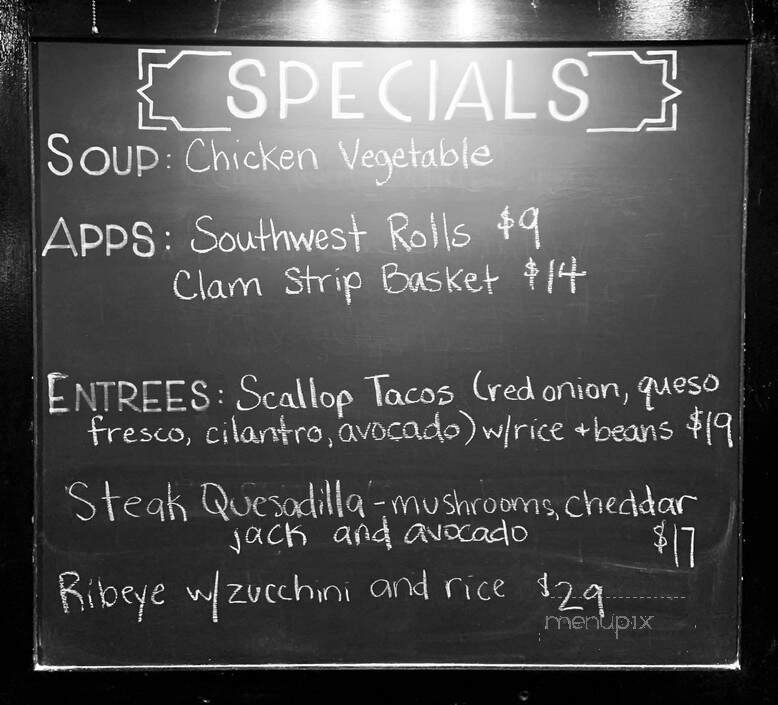 SPECIALS
SOUP: Chicken Vegetable
APPS: Southwest Rolls $9
Clam Strip Basket $14
ENTREES: Scallop Tacos (red onion, queso
fresco, cilantro, avocado) w/rice + beans $19
Steak Quesadilla - mushrooms, cheddar
jack and avocado $17
Ribeye w/zucchini and rice $29
menupix